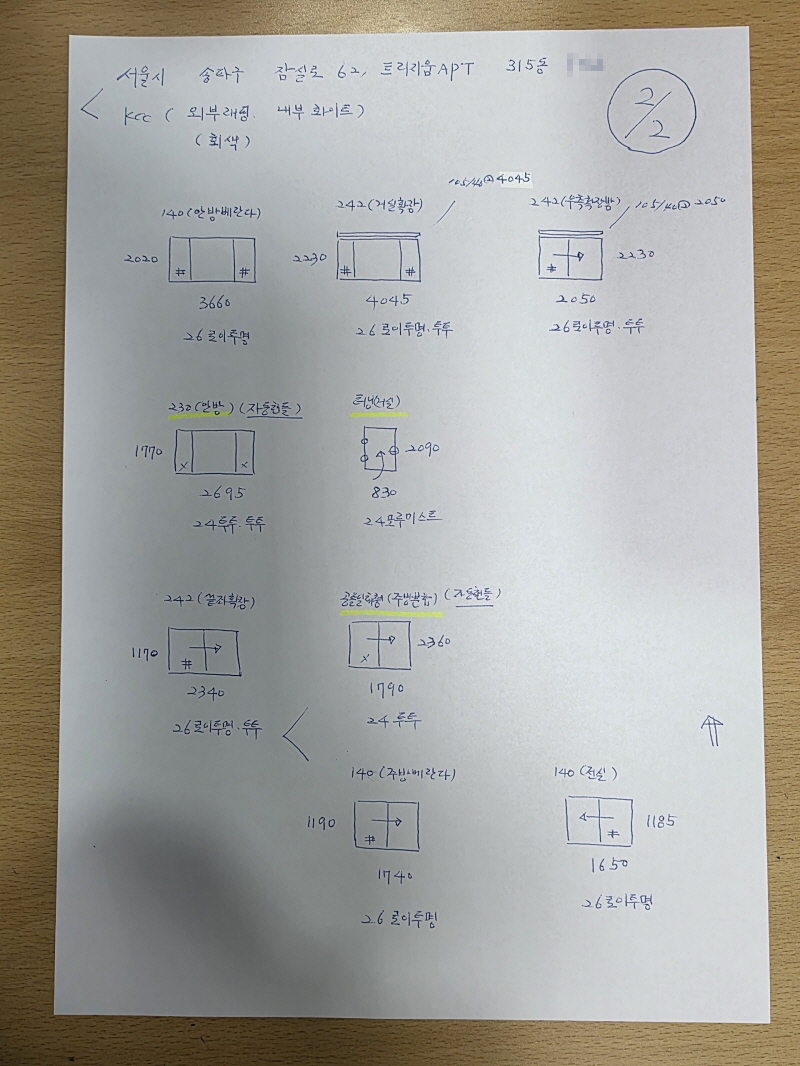 서울시 송파구 잠실로 62, 트리지움APT 315동
KCC ( 외부래핑. 내부 화이트 )
( 회색 )
2/2
140 (안방베란다)
2020
#
#
3660
26 로이투명
242 (거실확장)
4045
2230
#
#
4045
26 로이투명·투투
242 (우측확장방)
2050
2230
#
2050
26로이투명·투투
230 (안방) (자동핸들)
1770
x
x
2695
24투투·투투
터닝(거실)
2090
830
24모루미스트
1170
#
2340
26로이투명·투투
(주방분합) (자동핸들)
2360
x
1790
24 투투
140 (주방베란다)
1190
#
1740
26 로이투명
140 (전실)
1185
#
1650
26로이투명